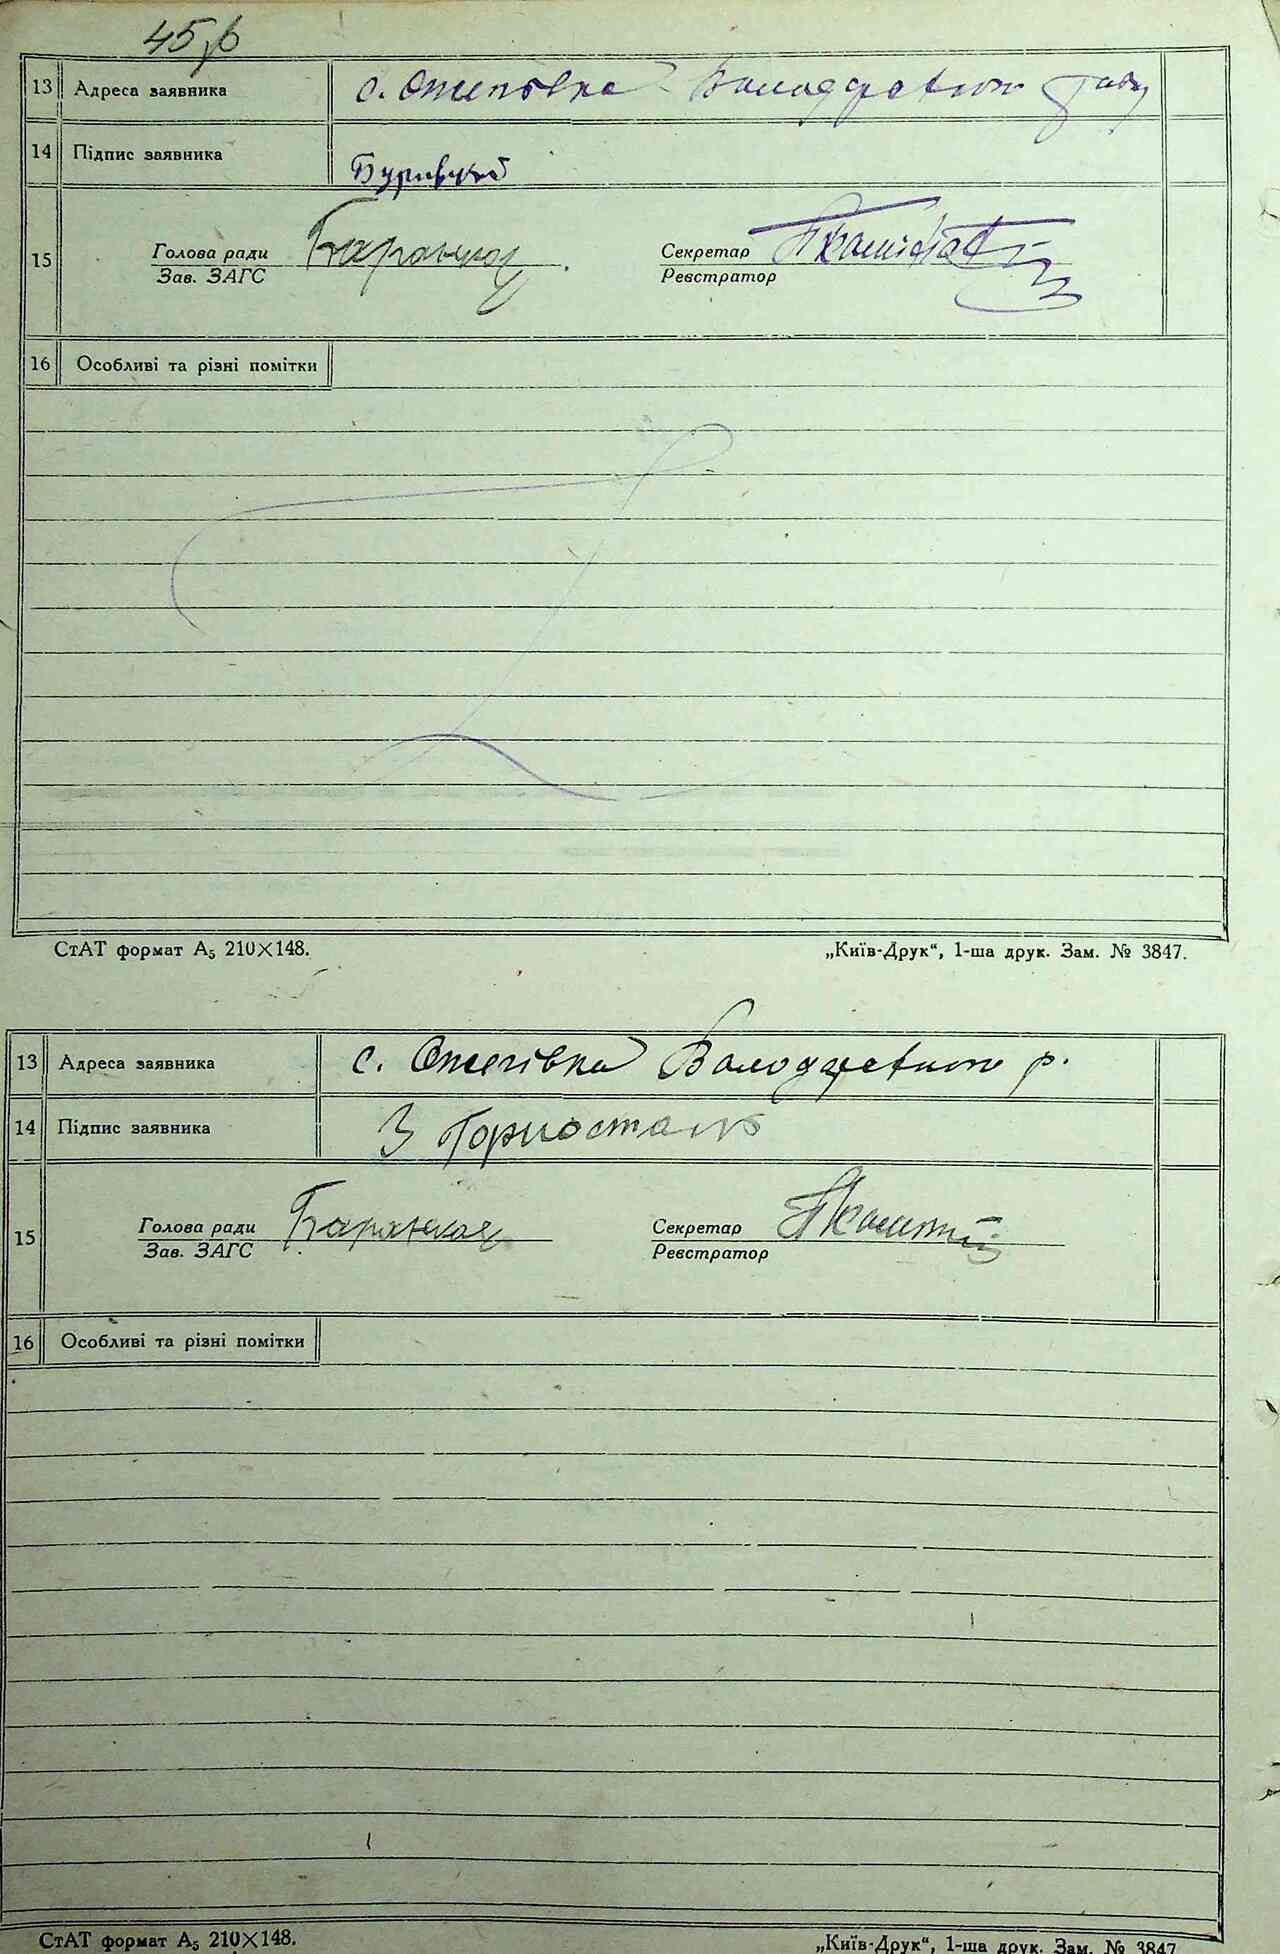 13 Адреса заявника с. Ожегівка Володарського
14 Підпис заявника
15 Голова ради Секретар
Зав. ЗАГС Реєстратор
16 Особливі та різні помітки
СтАТ формат А₅ 210×148. „Київ-Друк“, 1-ша друк. Зам. № 3847.
13 Адреса заявника с. Ожегівка Володарського р.
14 Підпис заявника З Горносталь
15 Голова ради Секретар
Зав. ЗАГС Реєстратор
16 Особливі та різні помітки
СтАТ формат А₅ 210×148. „Київ-Друк“, 1-ша друк. Зам. № 3847